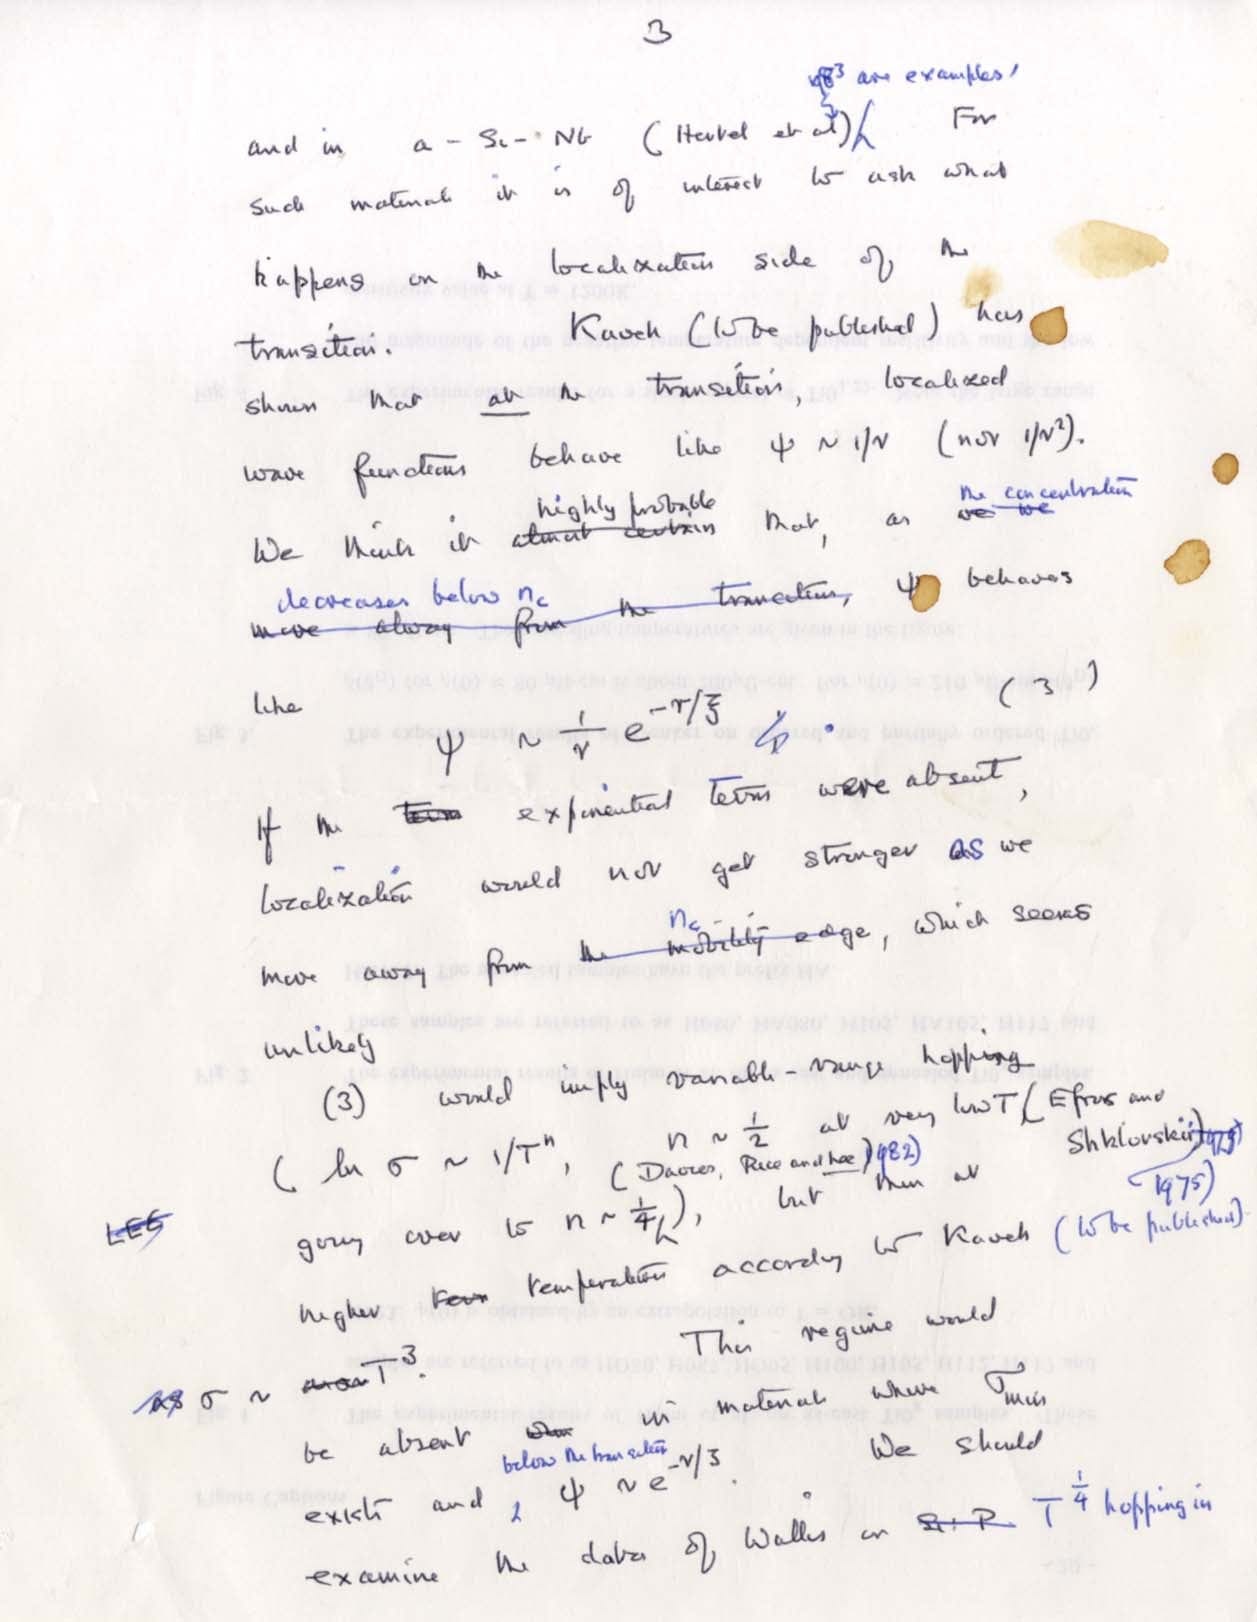 3
are examples,
and in a-Si-Nb (Hertel et al) For
such materials it is of interest to ask what
happens on the localization side of the
transition. Kaveh (to be published) has
shown that at the transition, localized
wave functions behave like ψ ~ 1/r (not 1/r²).
highly probable the concentration
We think it almost certain that, as we we
decreases below nc
move away from the transition, ψ behaves
like
ψ ~ 1/r e^-r/ξ . (3)
If the term exponential terms were absent,
localization would not get stronger as we
nc
move away from the mobility edge, which seems
unlikely
(3) would imply variable-range hopping
(ln σ ~ 1/Tⁿ, n ~ 1/2 at very low T (Efros and
Shklovskii) 1975
(Davies, Rice and Lee) 1982) 1975)
LEE going over to n ~ 1/4), but then at
higher temperatures according to Kaveh (to be published)
as σ ~ T³. This regime would
be absent when in materials where σmin
below the transition
exists and ψ ~ e^-r/ξ. We should
examine the data of Wallis on Si:P T^1/4 hopping in